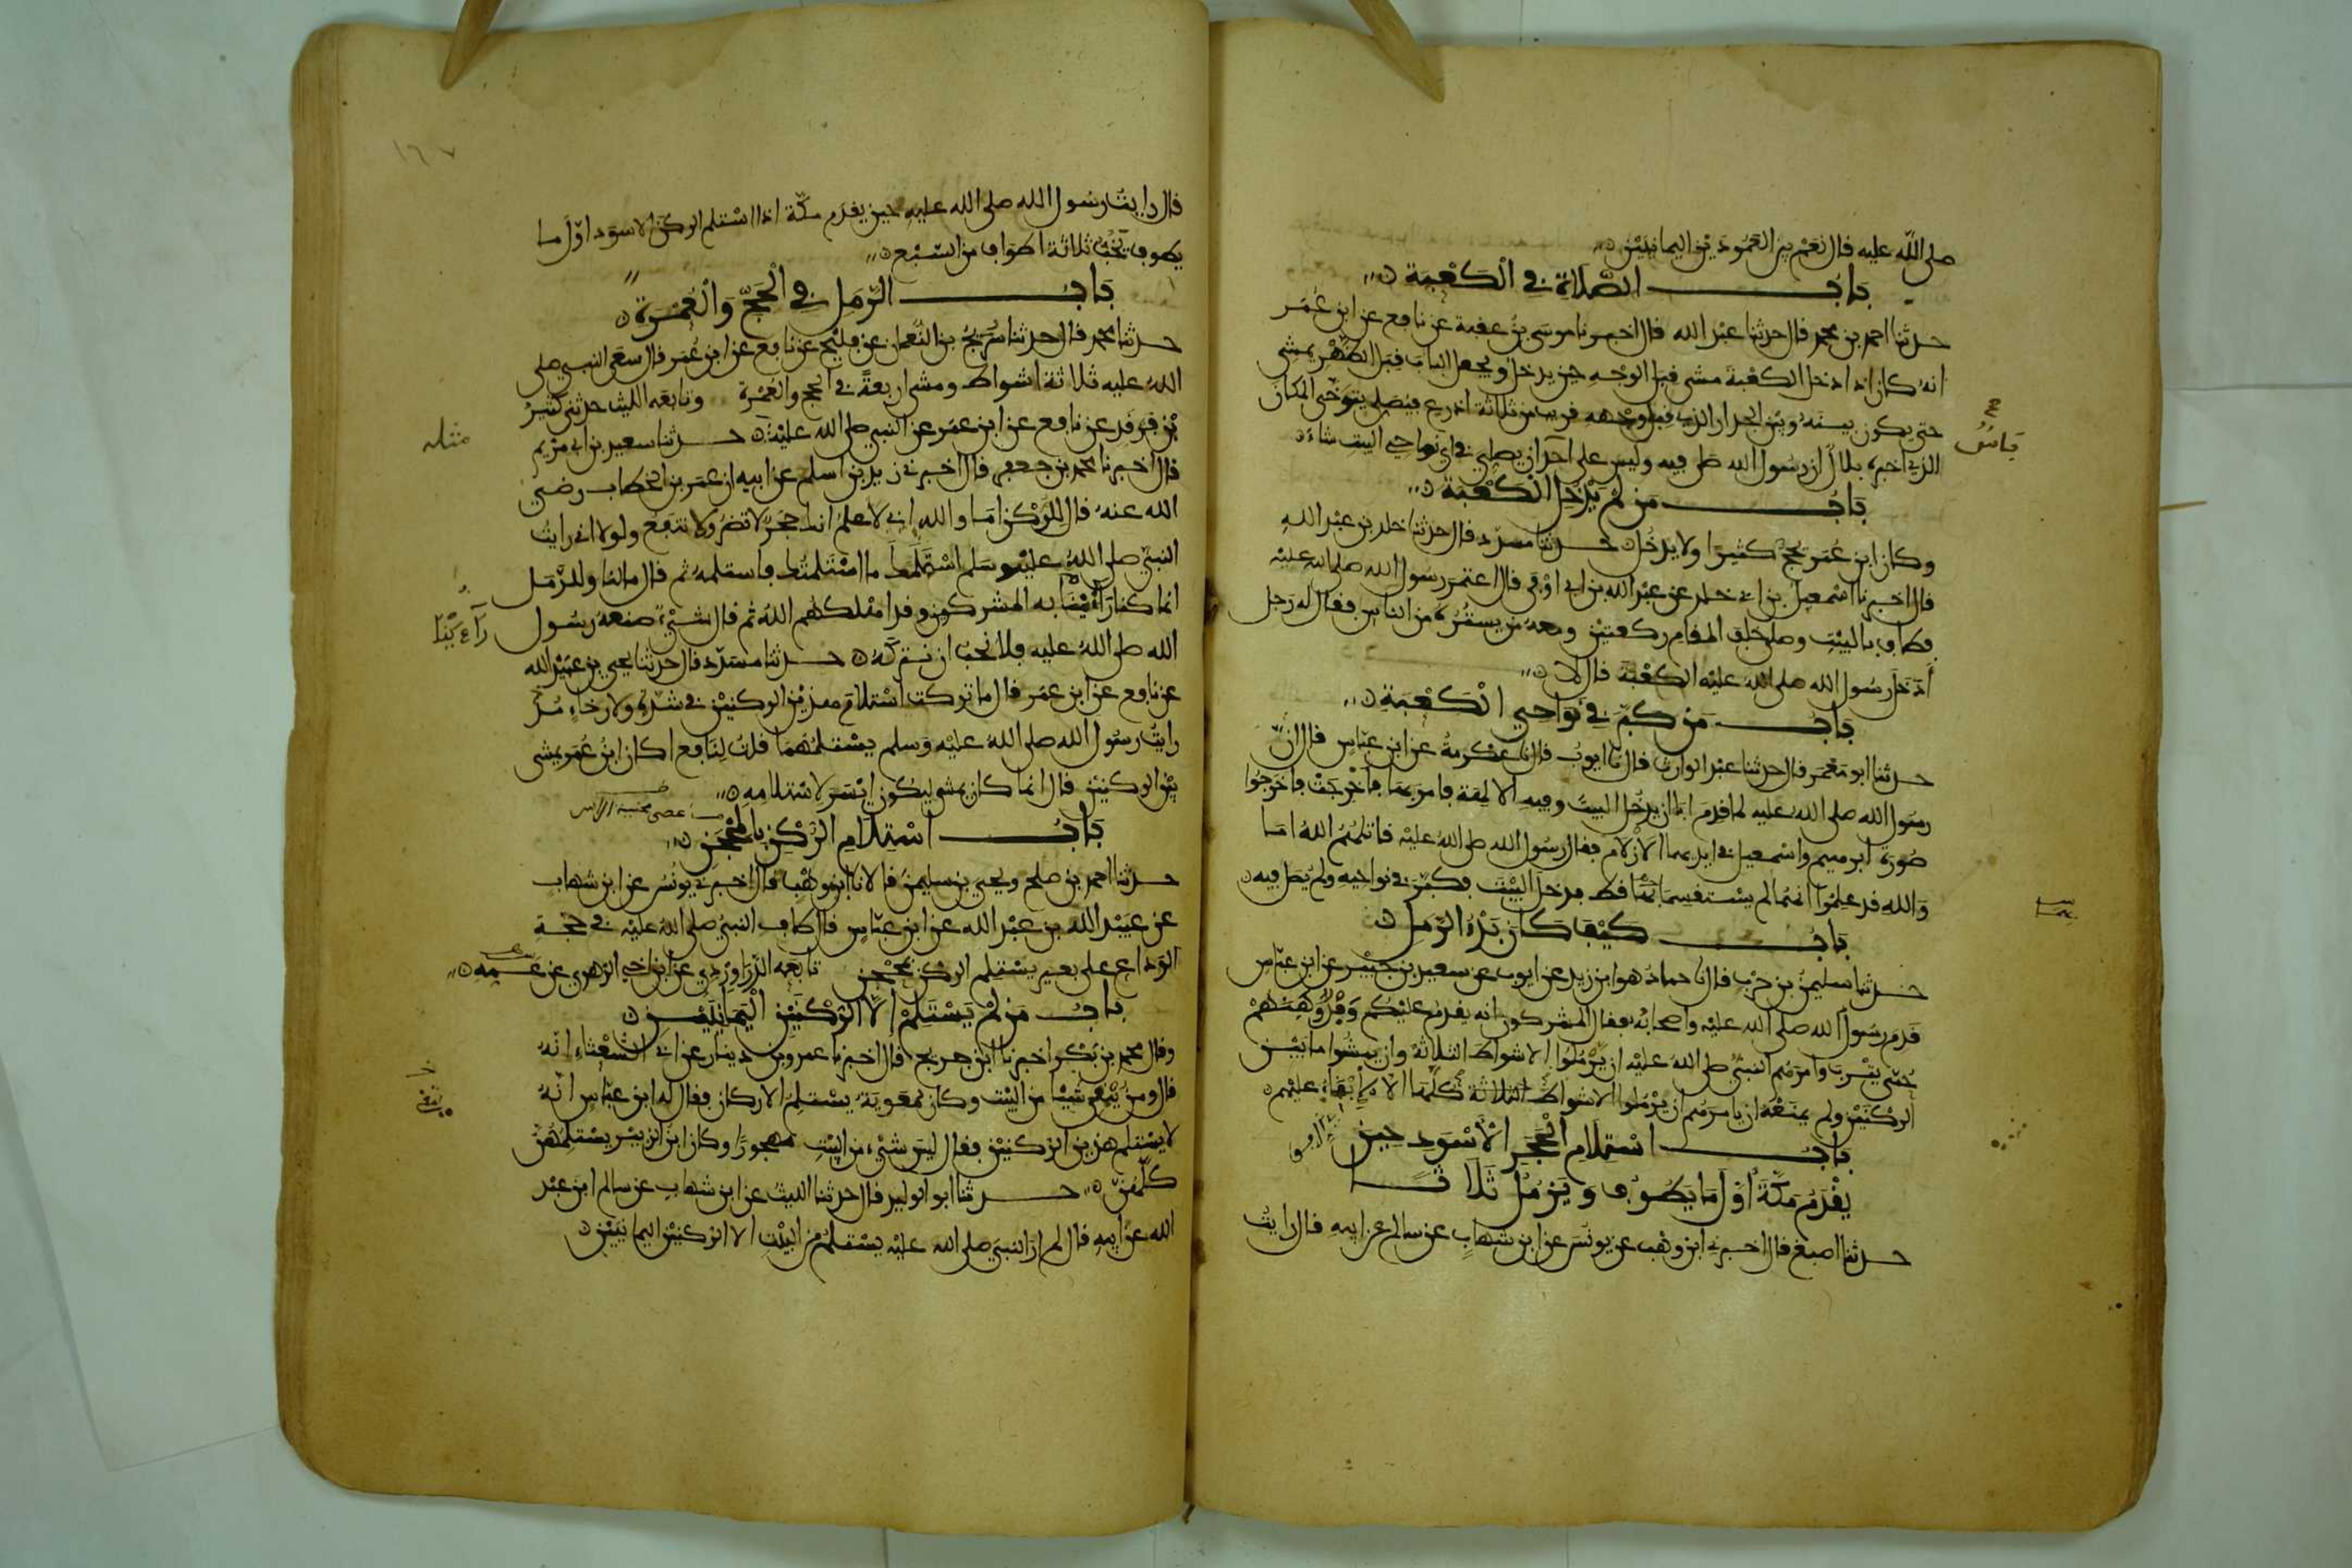 صلى الله عليه قال نعم بين العمودين اليمانيين
باب الصلاة في الكعبة
حدثنا احمد بن محمد قال حدثنا عبد الله قال اخبرنا موسى بن عقبة عن نافع عن ابن عمر
انه كان اذا دخل الكعبة مشى قبل الوجه حين يدخل ويجعل الباب قبل الظهر يمشي
حتى يكون بينه وبين الجدار الذي قبل وجهه قريب من ثلاثة اذرع فيصلي يتوخى المكان
الذي اخبره بلال ان رسول الله صلى فيه وليس على احد ان يصلي في اي نواحي البيت شاء
باب من لم يدخل الكعبة
وكان ابن عمر يحج كثيرا ولا يدخل حدثنا مسدد قال حدثنا خلد بن عبد الله
قال اخبرنا اسمعيل بن ابي خلد عن عبد الله بن ابي اوفى قال اعتمر رسول الله صلى الله عليه
فطاف بالبيت وصلى خلف المقام ركعتين ومعه من يستره من الناس فقال له رجل
أدخل رسول الله صلى الله عليه الكعبة قال لا
باب من كبر في نواحي الكعبة
حدثنا ابو معمر قال حدثنا عبد الوارث قال نا ايوب قال نا عكرمة عن ابن عباس قال ان
رسول الله صلى الله عليه لما قدم ابا ان يدخل البيت وفيه الالهة فامر بها فاخرجت فاخرجوا
صورة ابرهيم واسمعيل في ايديهما الازلام فقال رسول الله صلى الله عليه قاتلهم الله اما
والله قد علموا انهما لم يستقسما بها قط فدخل البيت فكبر في نواحيه ولم يصل فيه
باب كيف كان بدء الرمل
حدثنا سليمن بن حرب قال نا حماد هو ابن زيد عن ايوب عن سعيد بن جبير عن ابن عباس
قدم رسول الله صلى الله عليه واصحابه فقال المشركون انه يقدم عليكم وفد وهنهم
حمى يثرب وامرهم النبي صلى الله عليه ان يرملوا الاشواط الثلاثة وان يمشوا ما بين
الركنين ولم يمنعه ان يامرهم ان يرملوا الاشواط الثلاثة كلها الا الابقاء عليهم
باب استلام الحجر الاسود حين
يقدم مكة اول ما يطوف ويرمل ثلاثا
حدثنا اصبغ قال اخبرني ابن وهب عن يونس عن ابن شهاب عن سالم عن ابيه قال رايت
١٦٧
قال رايت رسول الله صلى الله عليه حين يقدم مكة اذا استلم الركن الاسود اول ما
يطوف يخب ثلاثة اطواف من السبع
باب الرمل في الحج والعمرة
حدثنا محمد قال حدثنا سريج بن النعمان عن فليح عن نافع عن ابن عمر قال سعى النبي صلى
الله عليه ثلاثة اشواط ومشى اربعة في الحج والعمرة وتابعه الليث حدثني كثير
بن فرقد عن نافع عن ابن عمر عن النبي صلى الله عليه حدثنا سعيد بن ابي مريم
مثله
قال اخبرنا محمد بن جعفر قال اخبرني زيد بن اسلم عن ابيه ان عمر بن الخطاب رضي
الله عنه قال للركن اما والله اني لاعلم انك حجر لا تضر ولا تنفع ولولا اني رايت
النبي صلى الله عليه وسلم استلمك ما استلمتك فاستلمه ثم قال مالنا وللرمل
انما كنا راءينا به المشركين وقد اهلكهم الله ثم قال شيء صنعه رسول
الله صلى الله عليه فلا نحب ان نتركه حدثنا مسدد قال حدثنا يحيى بن عبيد الله
عن نافع عن ابن عمر قال ما تركت استلام هذين الركنين في شدة ولا رخاء مذ
رايت رسول الله صلى الله عليه وسلم يستلمهما قلت لنافع اكان ابن عمر يمشي
بين الركنين قال انما كان يمشي ليكون ايسر لاستلامه
باب استلام الركن بالمحجن
حدثنا احمد بن صلح ويحيى بن سليمن قالا نا ابن وهب قال اخبرني يونس عن ابن شهاب
عن عبيد الله بن عبد الله عن ابن عباس قال طاف النبي صلى الله عليه في حجة
الوداع على بعير يستلم الركن بمحجن تابعه الدراوردي عن ابن اخي الزهري عن عمه
باب من لم يستلم الا الركنين اليمانيين
وقال محمد بن بكر اخبرنا ابن جريج قال اخبرنا عمرو بن دينار عن ابي الشعثاء انه
قال ومن يتقي شيئا من البيت وكان معوية يستلم الاركان فقال له ابن عباس انه
لا يستلم هذين الركنين فقال ليس شيء من البيت مهجورا وكان ابن الزبير يستلمهن
كلهن حدثنا ابو الوليد قال حدثنا الليث عن ابن شهاب عن سالم ابن عبد
الله عن ابيه قال لم ار النبي صلى الله عليه يستلم من البيت الا الركنين اليمانيين